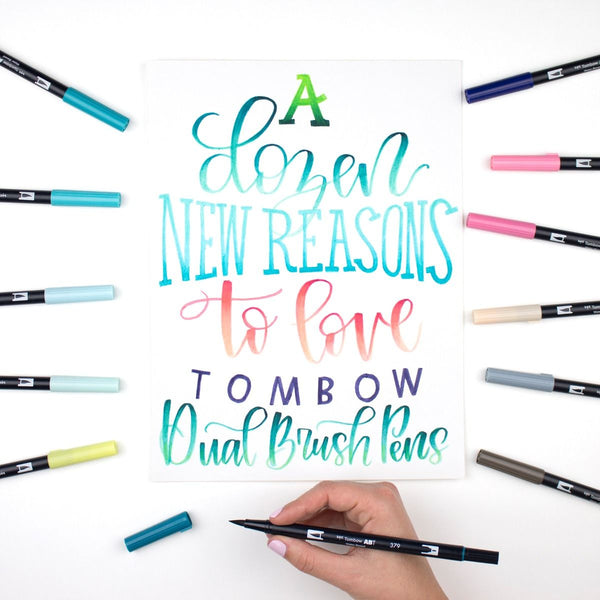 A
dozen
NEW REASONS
to love
TOMBOW
Dual Brush Pens
Tombow ABT
379